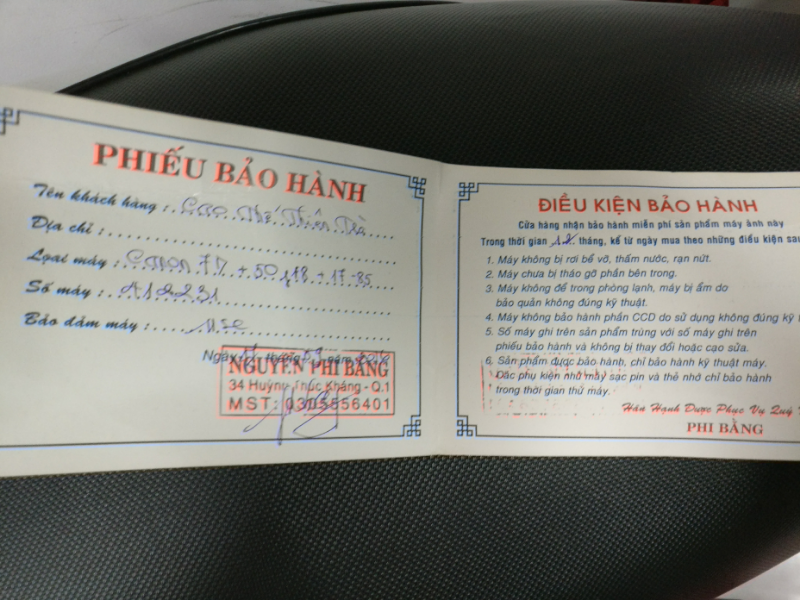 PHIẾU BẢO HÀNH
Tên khách hàng : Cao Thiên
Địa chỉ :
Loại máy : Canon 7D + 50 1.8 + 17-85
Số máy : A12231
Bảo đảm máy :
Ngày tháng năm
NGUYỄN PHI BẰNG
34 Huỳnh Thúc Kháng - Q.1
MST: 0303556401
ĐIỀU KIỆN BẢO HÀNH
Cửa hàng nhận bảo hành miễn phí sản phẩm máy ảnh này
Trong thời gian 12 tháng, kể từ ngày mua theo những điều kiện sau
1. Máy không bị rơi bể vỡ, thấm nước, rạn nứt.
2. Máy chưa bị tháo gỡ phần bên trong.
3. Máy không để trong phòng lạnh, máy bị ẩm do
bảo quản không đúng kỹ thuật.
4. Máy không bảo hành phần CCD do sử dụng không đúng kỹ
5. Số máy ghi trên sản phẩm trùng với số máy ghi trên
phiếu bảo hành và không bị thay đổi hoặc cạo sửa.
6. Sản phẩm được bảo hành, chỉ bảo hành kỹ thuật máy.
Các phụ kiện như máy sạc pin và thẻ nhớ chỉ bảo hành
trong thời gian thử máy.
Hân Hạnh Được Phục Vụ Quý
PHI BẰNG